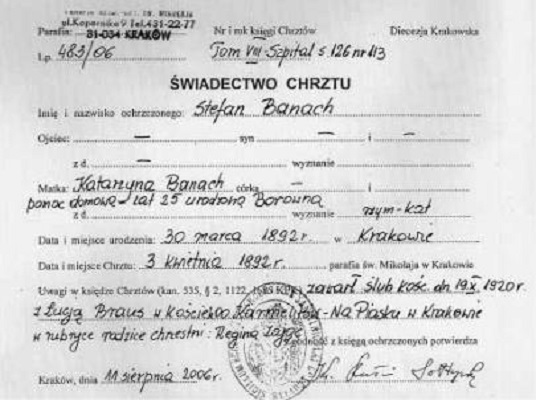 pl.Kopernika 9 Tel.431-22-77
Parafia: 31-034 KRAKÓW Nr i rok księgi Chrztów Diecezja Krakowska
Lp. 483/06 Tom VIII-Szpital s.126 nr 413
ŚWIADECTWO CHRZTU
Imię i nazwisko ochrzczonego: Stefan Banach
Ojciec: — syn — i —
z d. — wyznanie
Matka: Katarzyna Banach córka — i
pomoc domowa lat 25 urodzona Borowna
z d. wyznanie rzym-kat
Data i miejsce urodzenia: 30 marca 1892r. w Krakowie
Data i miejsce Chrztu: 3 kwietnia 1892r. parafia św. Mikołaja w Krakowie
Uwagi w księdze Chrztów (kan. 535, § 2, 1122, 1685 KPK) zawarł ślub kośc. dn 19 X 1920r.
z Łucją Braus w Kościele OO. Karmelitów - Na Piasku w Krakowie
w rubryce rodzice chrzestni: Regina
Zgodność z księgą ochrzczonych potwierdza
Kraków, dnia 11 sierpnia 2006r. Ks.